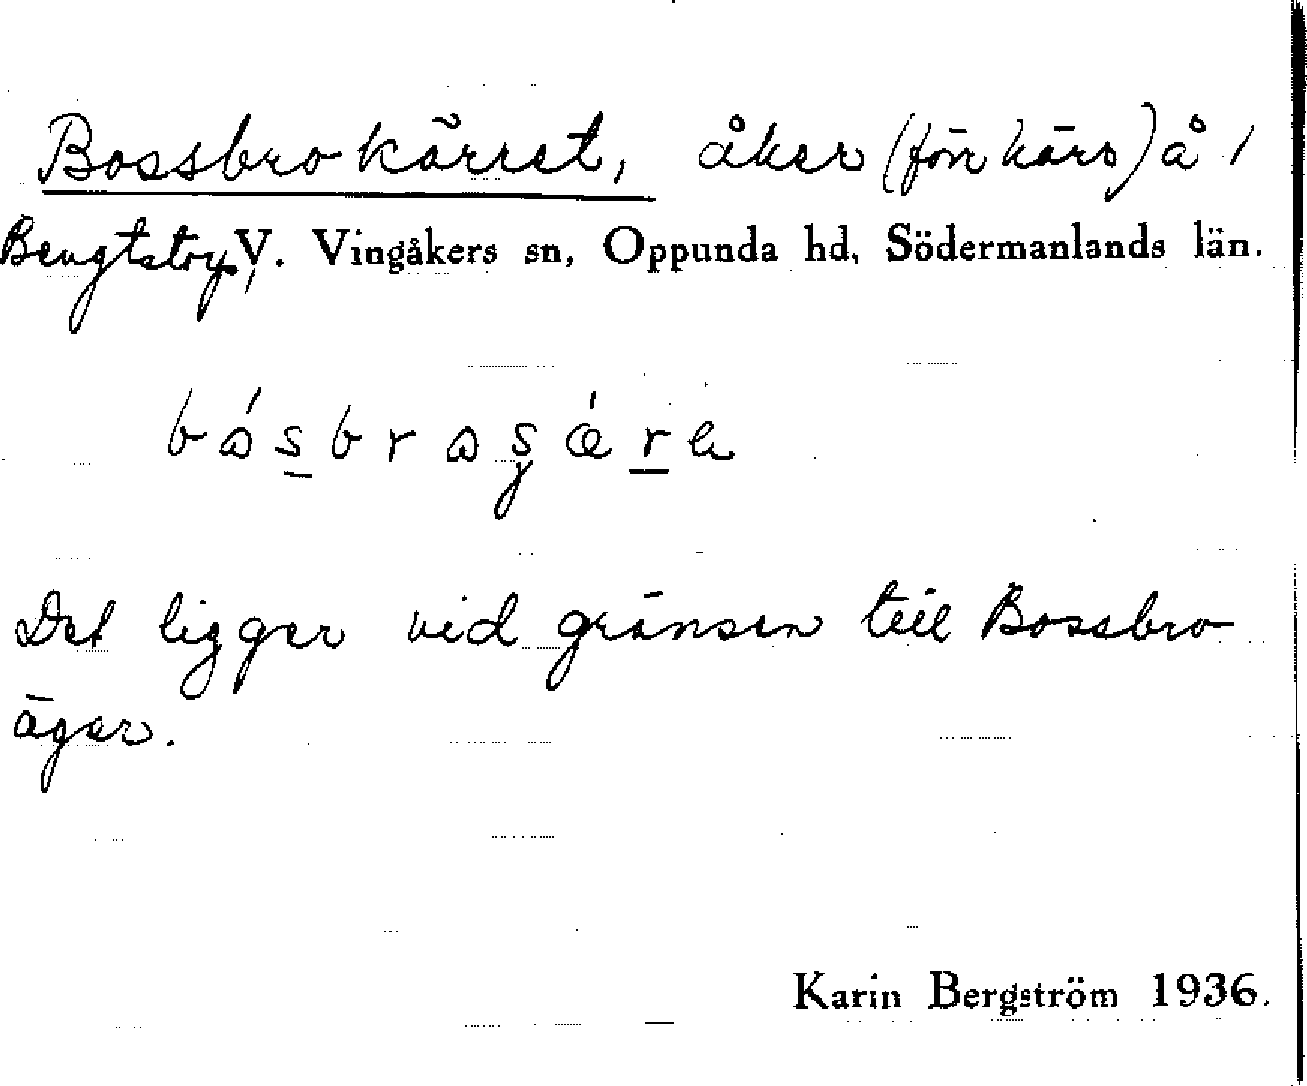 Bossbrokärret, åker (förr kärr) å 1
Bengtstorp, V. Vingåkers sn, Oppunda hd, Södermanlands län.
Det ligger vid gränsen till Bossbro
ägor.
Karin Bergström 1936.